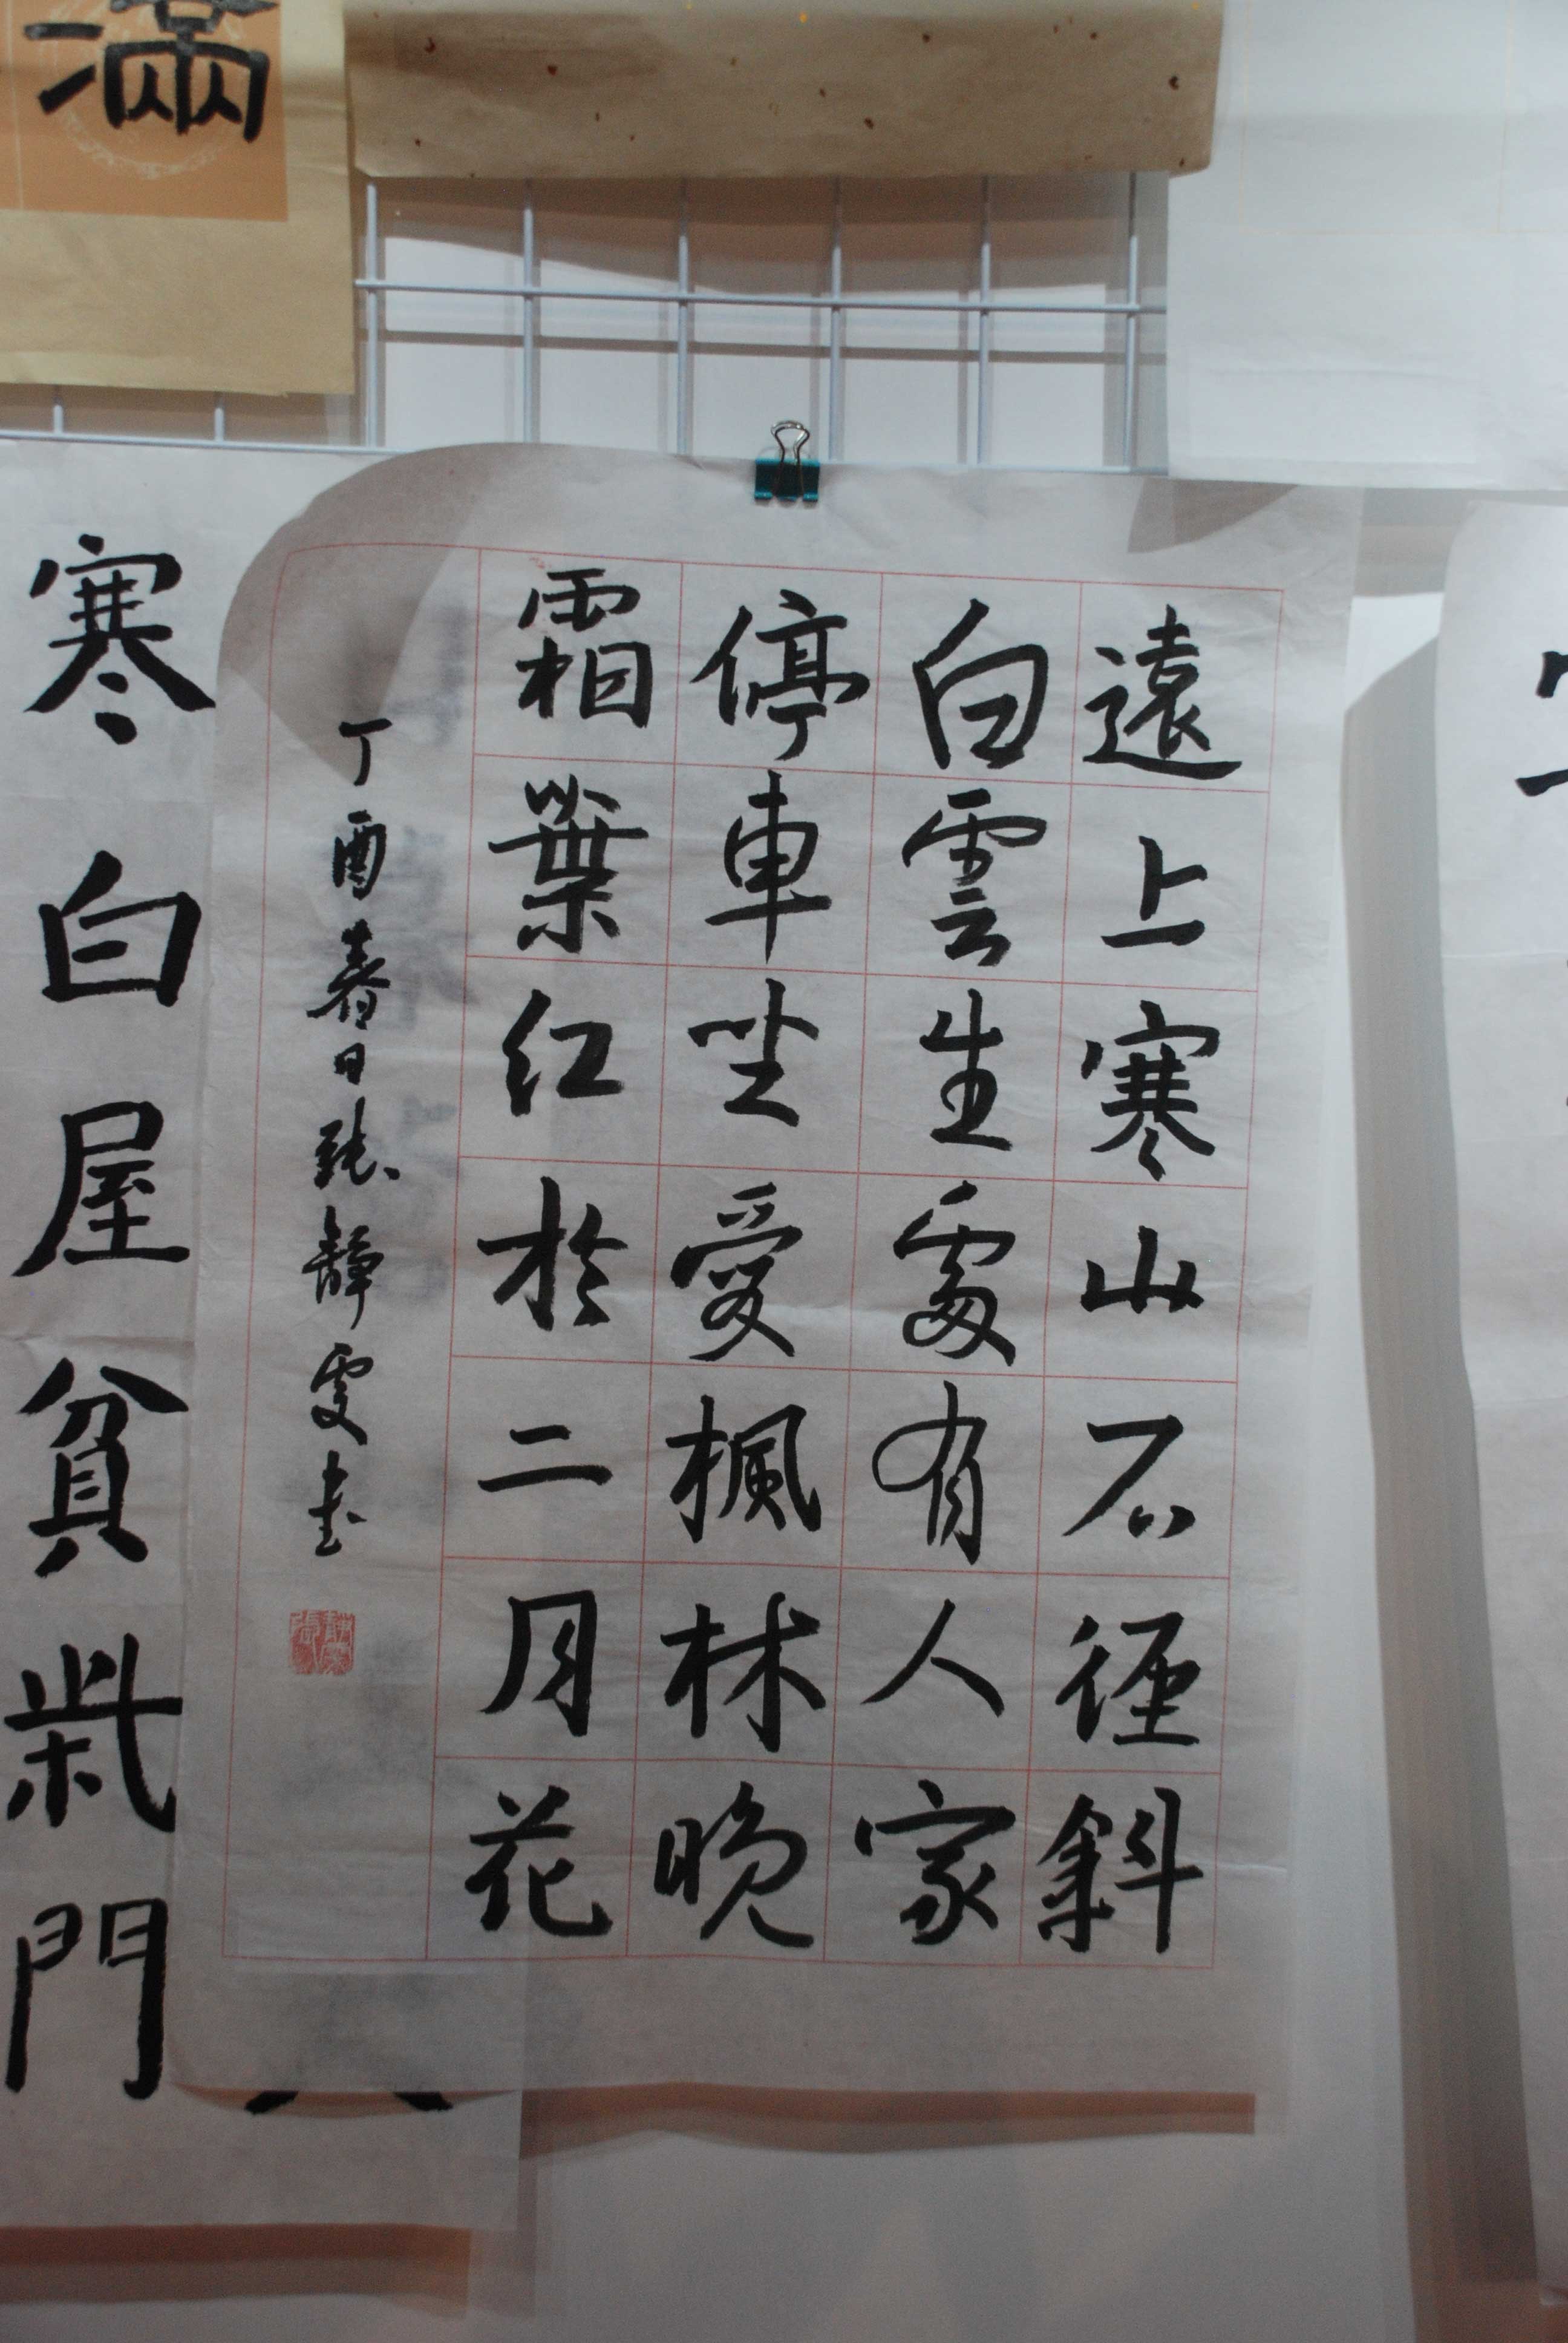 遠上寒山石徑斜
白雲生處有人家
停車坐愛楓林晚
霜葉红於二月花
丁酉春日張靜雯書
寒白屋貧柴門
滿